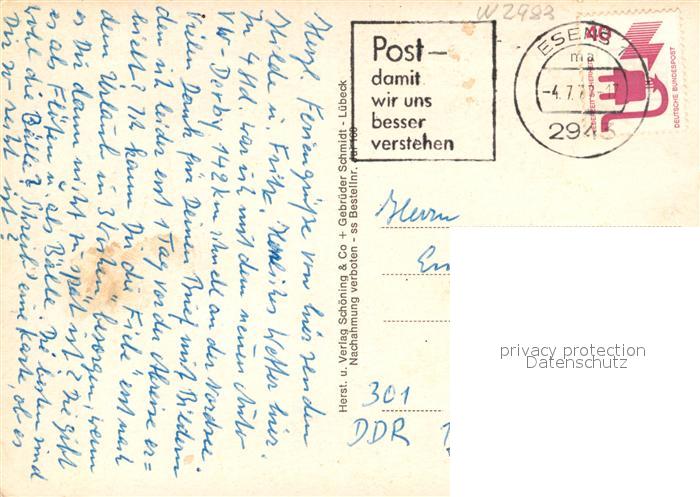 W 2983
Post-
damit
wir uns
besser
verstehen
ESENS 1
ma
-4.7.7
294
40
DEUTSCHE BUNDESPOST
Herzl. Feriengrüße von hier senden
Hilde u. Fritz. Herrliches Wetter hier.
In 4 Std. war ich mit dem neuen Auto
VW-Derby 142 km schnell an der Nordsee.
Vielen Dank für Deinen Brief mit Bildern
den ich leider erst 1 Tag vor der Abreise er=
hielt. Ich kann Dir die "Fich" erst nach
dem Urlaub in 3 Wochen besorgen, wenn
es Dir dann nicht zu spät ist? Sie gibt
es als Flöten u. als Bälle. Die besten sind
wohl die Bälle? Schreib eine Karte, ob es
Dir so recht ist?
Herst. u. Verlag Schöning & Co + Gebrüder Schmidt - Lübeck
Nachahmung verboten - ss Bestellnr.
Herrn
301
DDR
privacy protection
Datenschutz